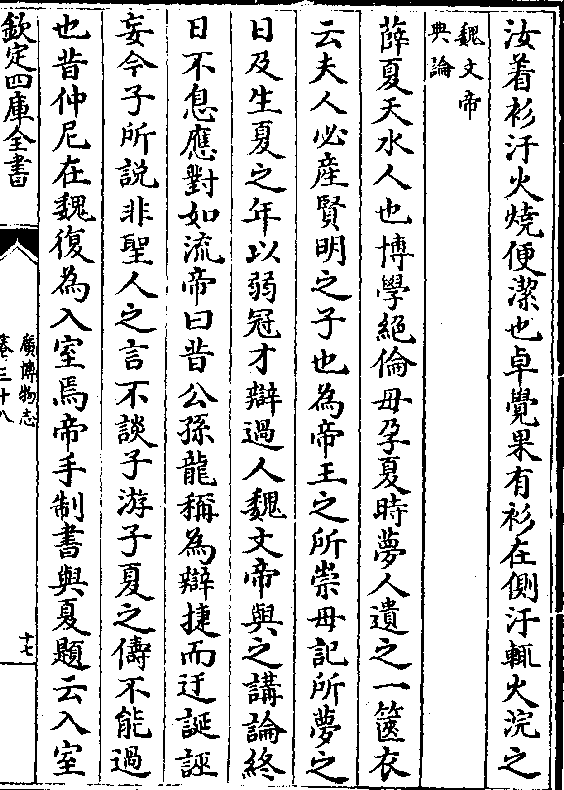 汝着衫汙火燒便潔也卓覺果有衫在側汙輒火浣之
魏文帝
典論
薛夏天水人也博學絕倫母孕夏時夢人遺之一篋衣
云夫人必產賢明之子也為帝王之所崇母記所夢之
日及生夏之年以弱冠才辯過人魏文帝與之講論終
日不息應對如流帝曰昔公孫龍稱為辯捷而迂誕誣
妄今子所說非聖人之言不談子游子夏之儔不能過
也昔仲尼在魏復為入室焉帝手制書與夏題云入室
欽定四庫全書
廣博物志
卷三十八
十七